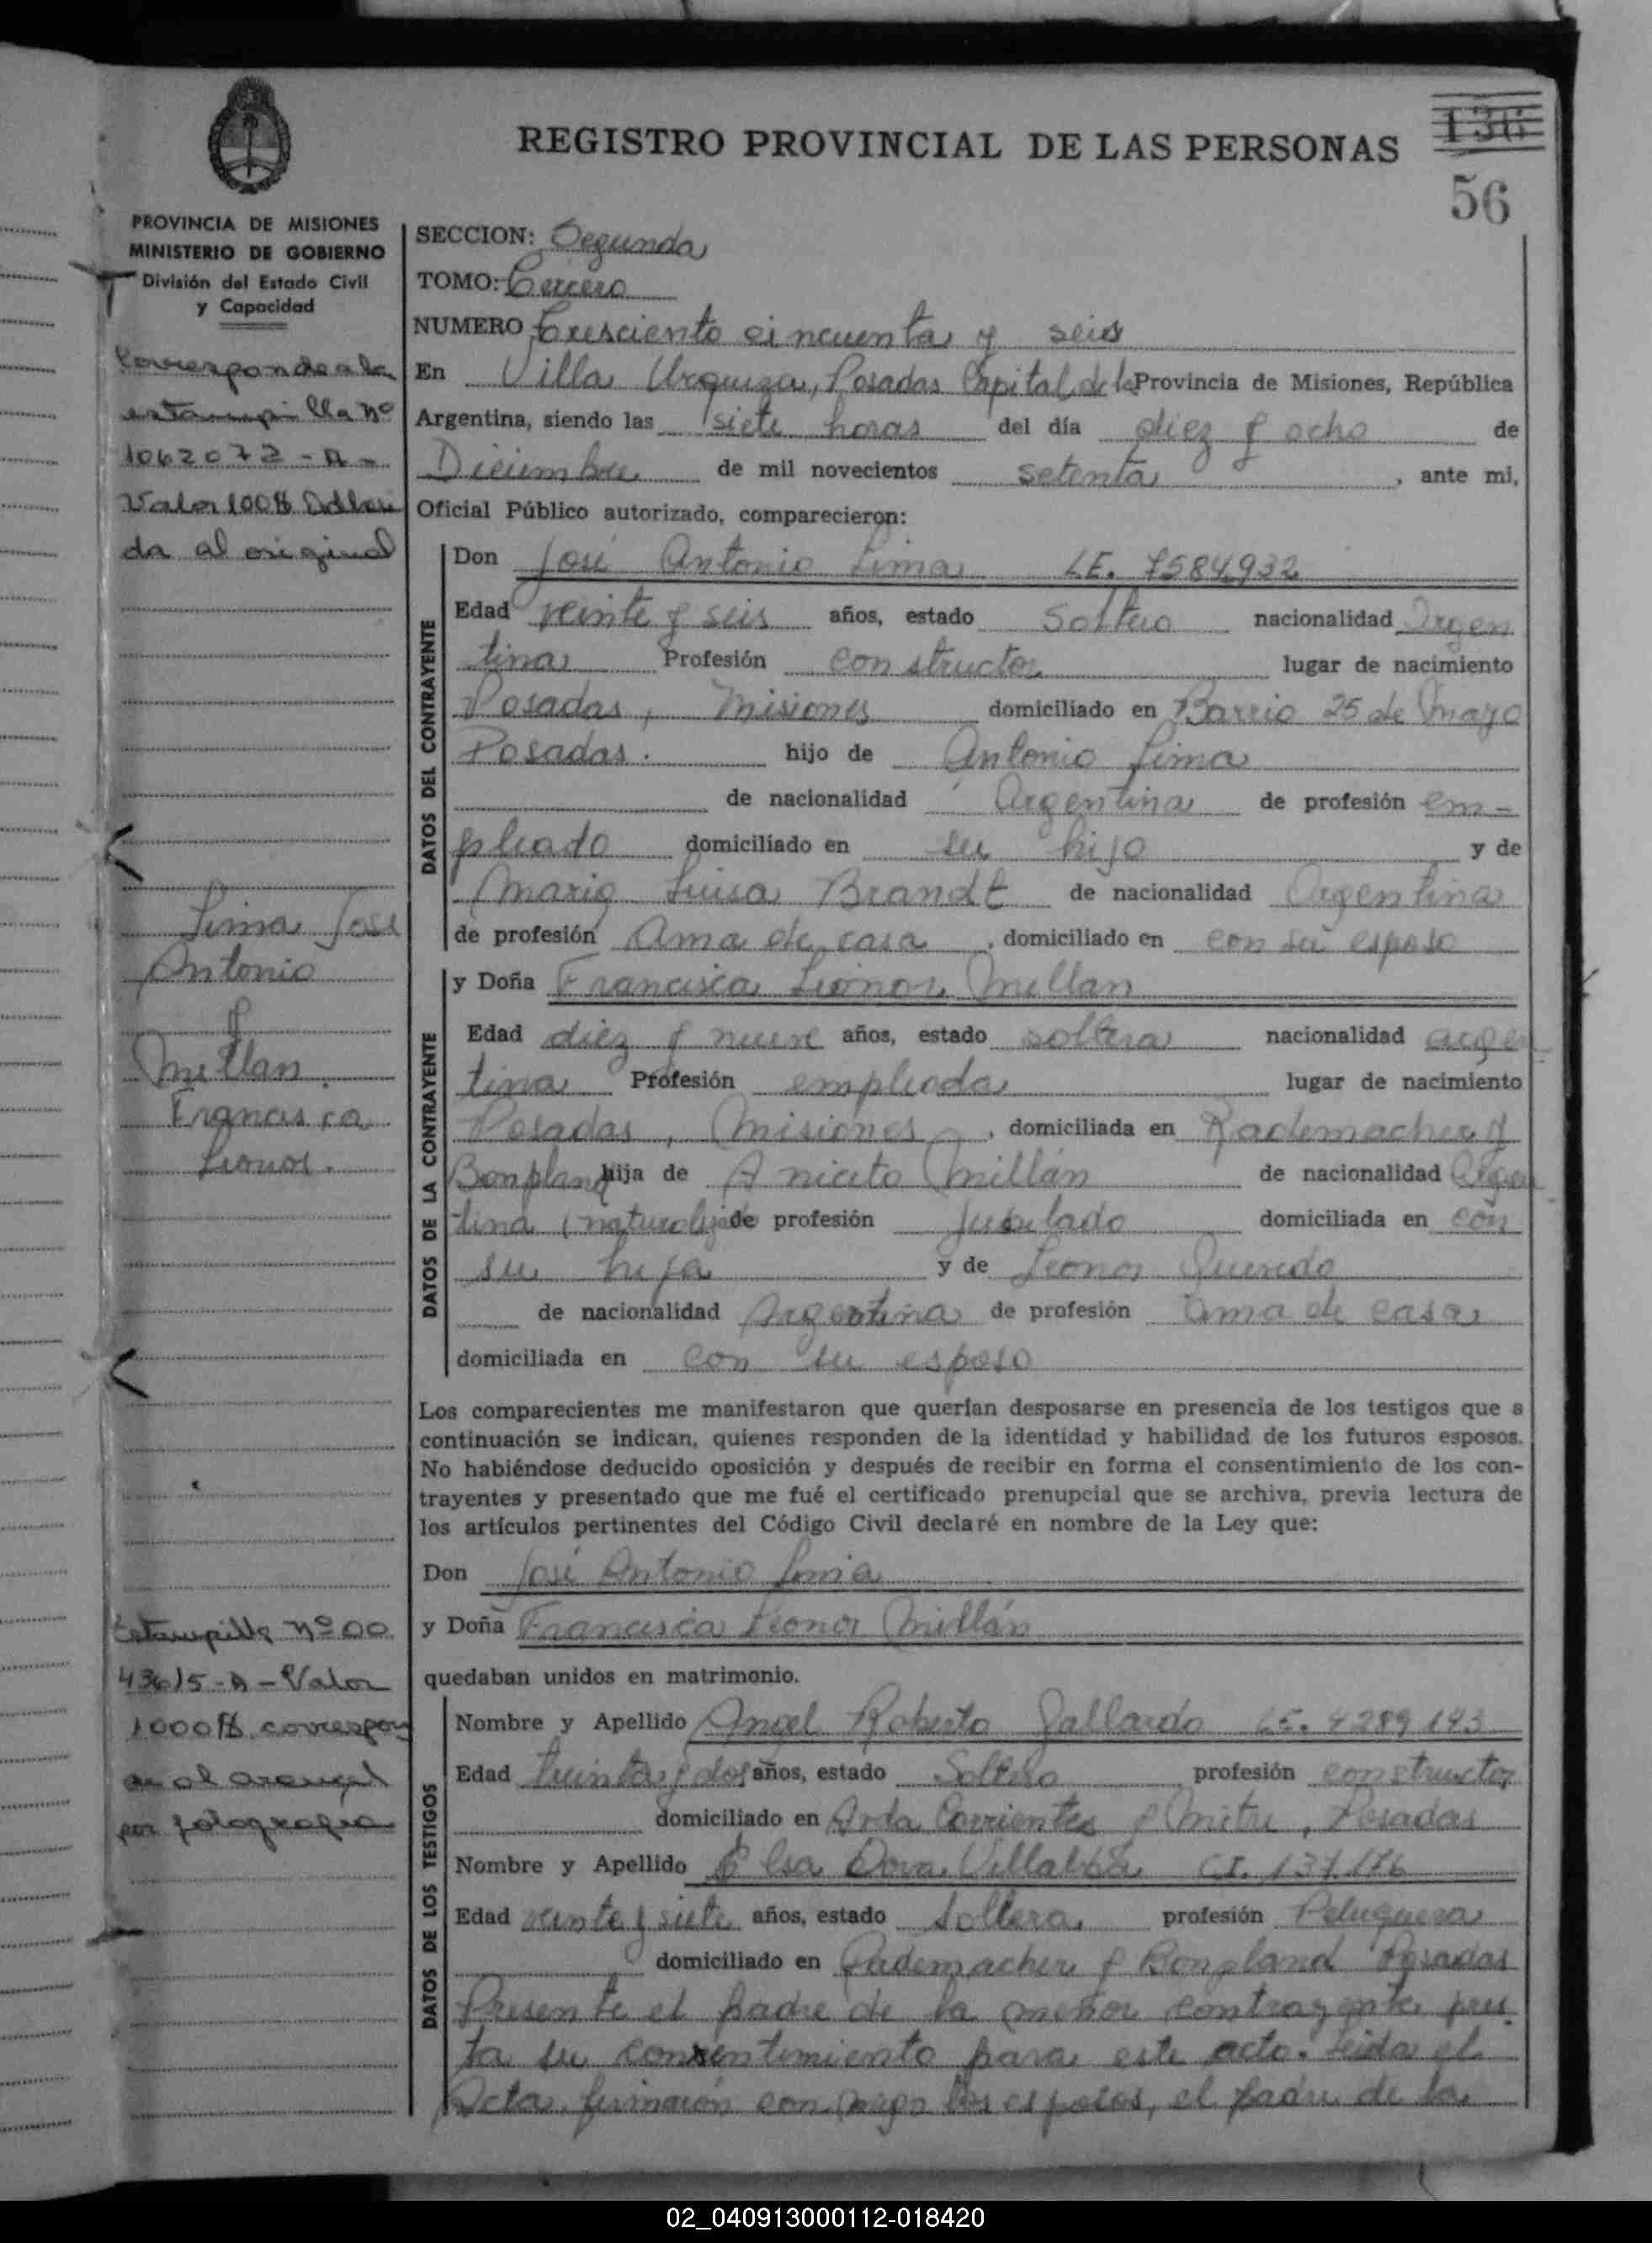 REGISTRO PROVINCIAL DE LAS PERSONAS
136
56
PROVINCIA DE MISIONES
MINISTERIO DE GOBIERNO
División del Estado Civil
y Capacidad
Corresponde a la
estampilla nº
1062072-A-
Valor 100$ Adheri
da al original
Lima José
Antonio
y
Millan
Francisca
Leonor.
Estampilla Nº 00
43615-A-Valor
1000$ correspon
de al arancel
por fotografia
SECCION: Segunda
TOMO: Tercero
NUMERO Tresciento cincuenta y seis
En Villa Urquiza, Posadas Capital de la Provincia de Misiones, República
Argentina, siendo las siete horas del día diez y ocho de
Diciembre de mil novecientos setenta, ante mi,
Oficial Público autorizado, comparecieron:
DATOS DEL CONTRAYENTE
Don José Antonio Lima LE. 7584932
Edad veinte y seis años, estado Soltero nacionalidad Argen
tina Profesión constructor lugar de nacimiento
Posadas, Misiones domiciliado en Barrio 25 de Mayo
Posadas. hijo de Antonio Lima
de nacionalidad Argentina de profesión em-
pleado domiciliado en su hijo y de
Maria Luisa Brandt de nacionalidad Argentina
de profesión Ama de casa, domiciliado en con su esposo
DATOS DE LA CONTRAYENTE
y Doña Francisca Leonor Millan
Edad diez y nueve años, estado soltera nacionalidad argen
tina Profesión empleada lugar de nacimiento
Posadas, Misiones, domiciliada en Rademacher y
Bonpland hija de Aniceto Millán de nacionalidad Argen
tina (naturalizado de profesión Jubilado domiciliada en con
su hija y de Leonor Quevedo
de nacionalidad Argentina de profesión ama de casa
domiciliada en con su esposo
Los comparecientes me manifestaron que querían desposarse en presencia de los testigos que a
continuación se indican, quienes responden de la identidad y habilidad de los futuros esposos.
No habiéndose deducido oposición y después de recibir en forma el consentimiento de los con-
trayentes y presentado que me fué el certificado prenupcial que se archiva, previa lectura de
los artículos pertinentes del Código Civil declaré en nombre de la Ley que:
Don José Antonio Lima
y Doña Francisca Leonor Millán
quedaban unidos en matrimonio.
DATOS DE LOS TESTIGOS
Nombre y Apellido Angel Roberto Gallardo LE. 4289193
Edad treinta y dos años, estado Soltero profesión constructor
domiciliado en Avda Corrientes y Mitre, Posadas
Nombre y Apellido Elsa Dora Villalba CI. 137.176
Edad veinte y siete años, estado Soltera profesión Peluquera
domiciliado en Rademacher y Bonpland Posadas
Presente el padre de la menor contrayente pres
ta su consentimiento para este acto. Leida el
Acta, firmaron conmigo los esposos, el padre de la
02_040913000112-018420